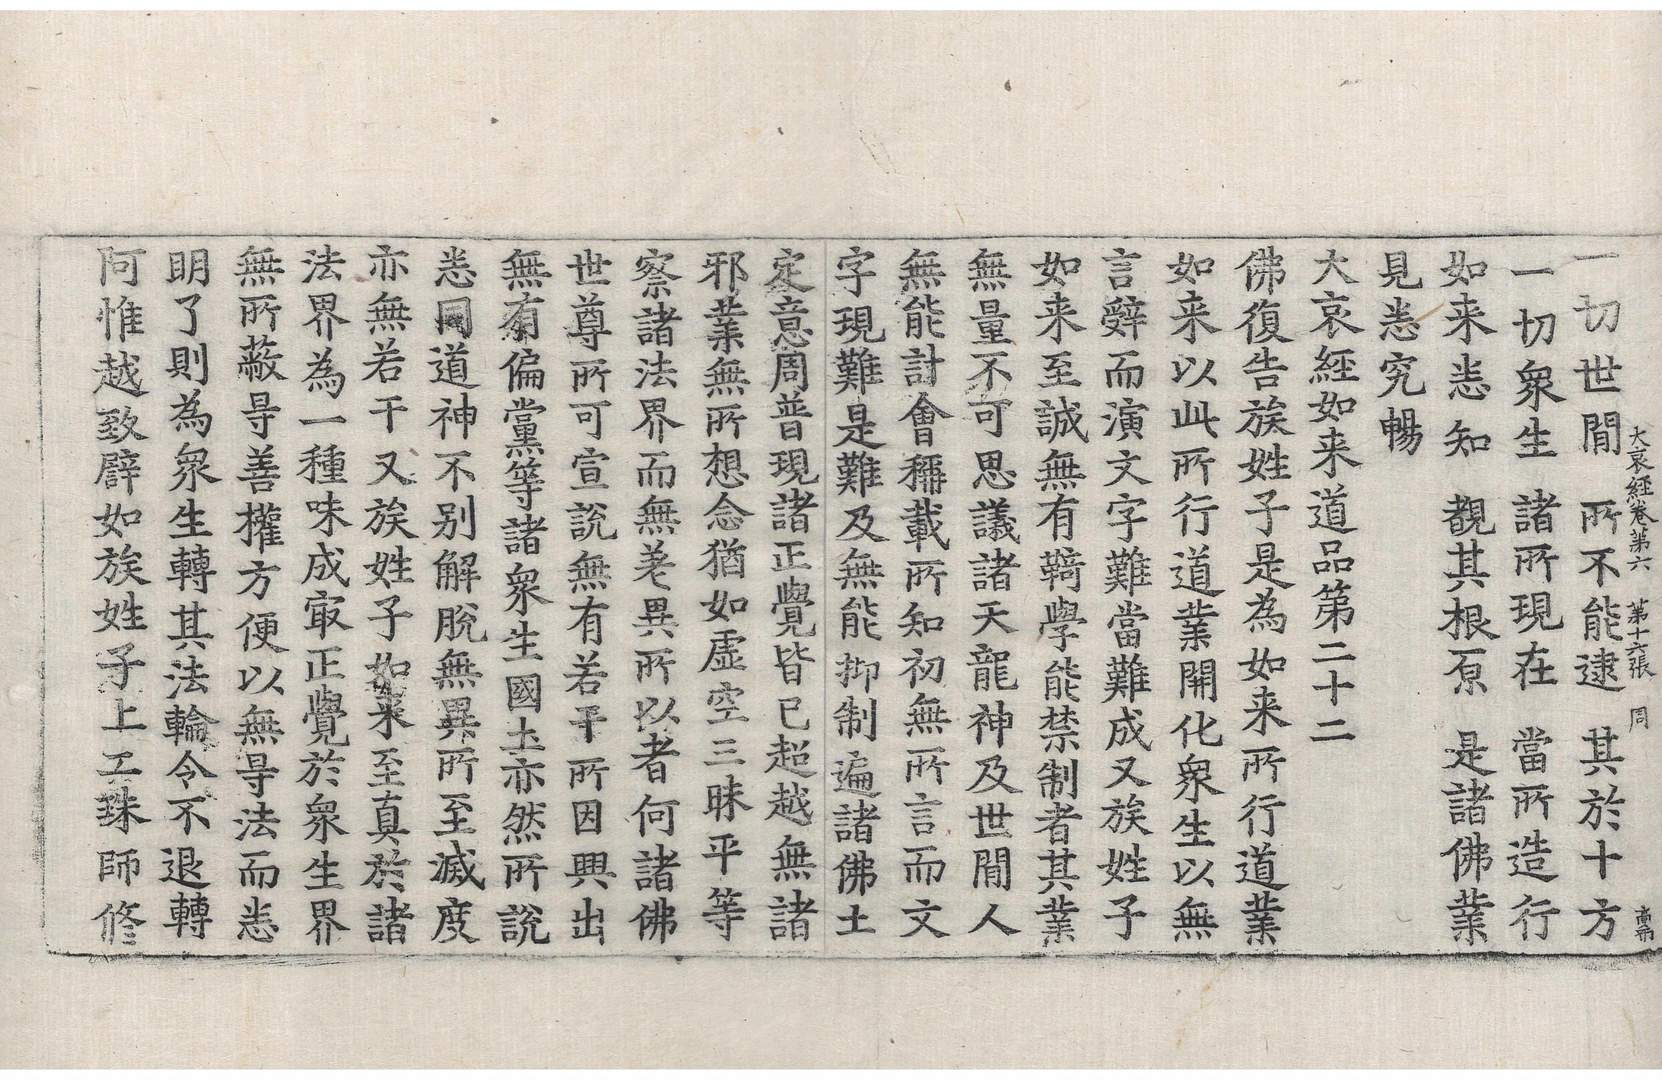 大哀經卷第六　第十六張　周
一切世間　所不能逮　其於十方
一切衆生　諸所現在　當所造行
如来悉知　覩其根原　是諸佛業
見悉究暢
大哀經如来道品第二十二
佛復告族姓子是為如来所行道業
如来以此所行道業開化衆生以無
言辝而演文字難當難成又族姓子
如来至誠無有䩭學能禁制者其業
無量不可思議諸天龍神及世間人
無能計會稱載所知初無所言而文
字現難是難及無能抑制遍諸佛土
定意周普現諸正覺皆已超越無諸
邪業無所想念猶如虛空三昧平等
察諸法界而無差異所以者何諸佛
世尊所可宣說無有若干所因興出
無有偏黨等諸衆生國土亦然所說
悉同道神不别解脫無異所至滅度
亦無若干又族姓子如来至真於諸
法界為一種味成㝡正覺於衆生界
無所蔽㝵善權方便以無㝵法而悉
明了則為衆生轉其法輪令不退轉
阿惟越致譬如族姓子上工珠師修